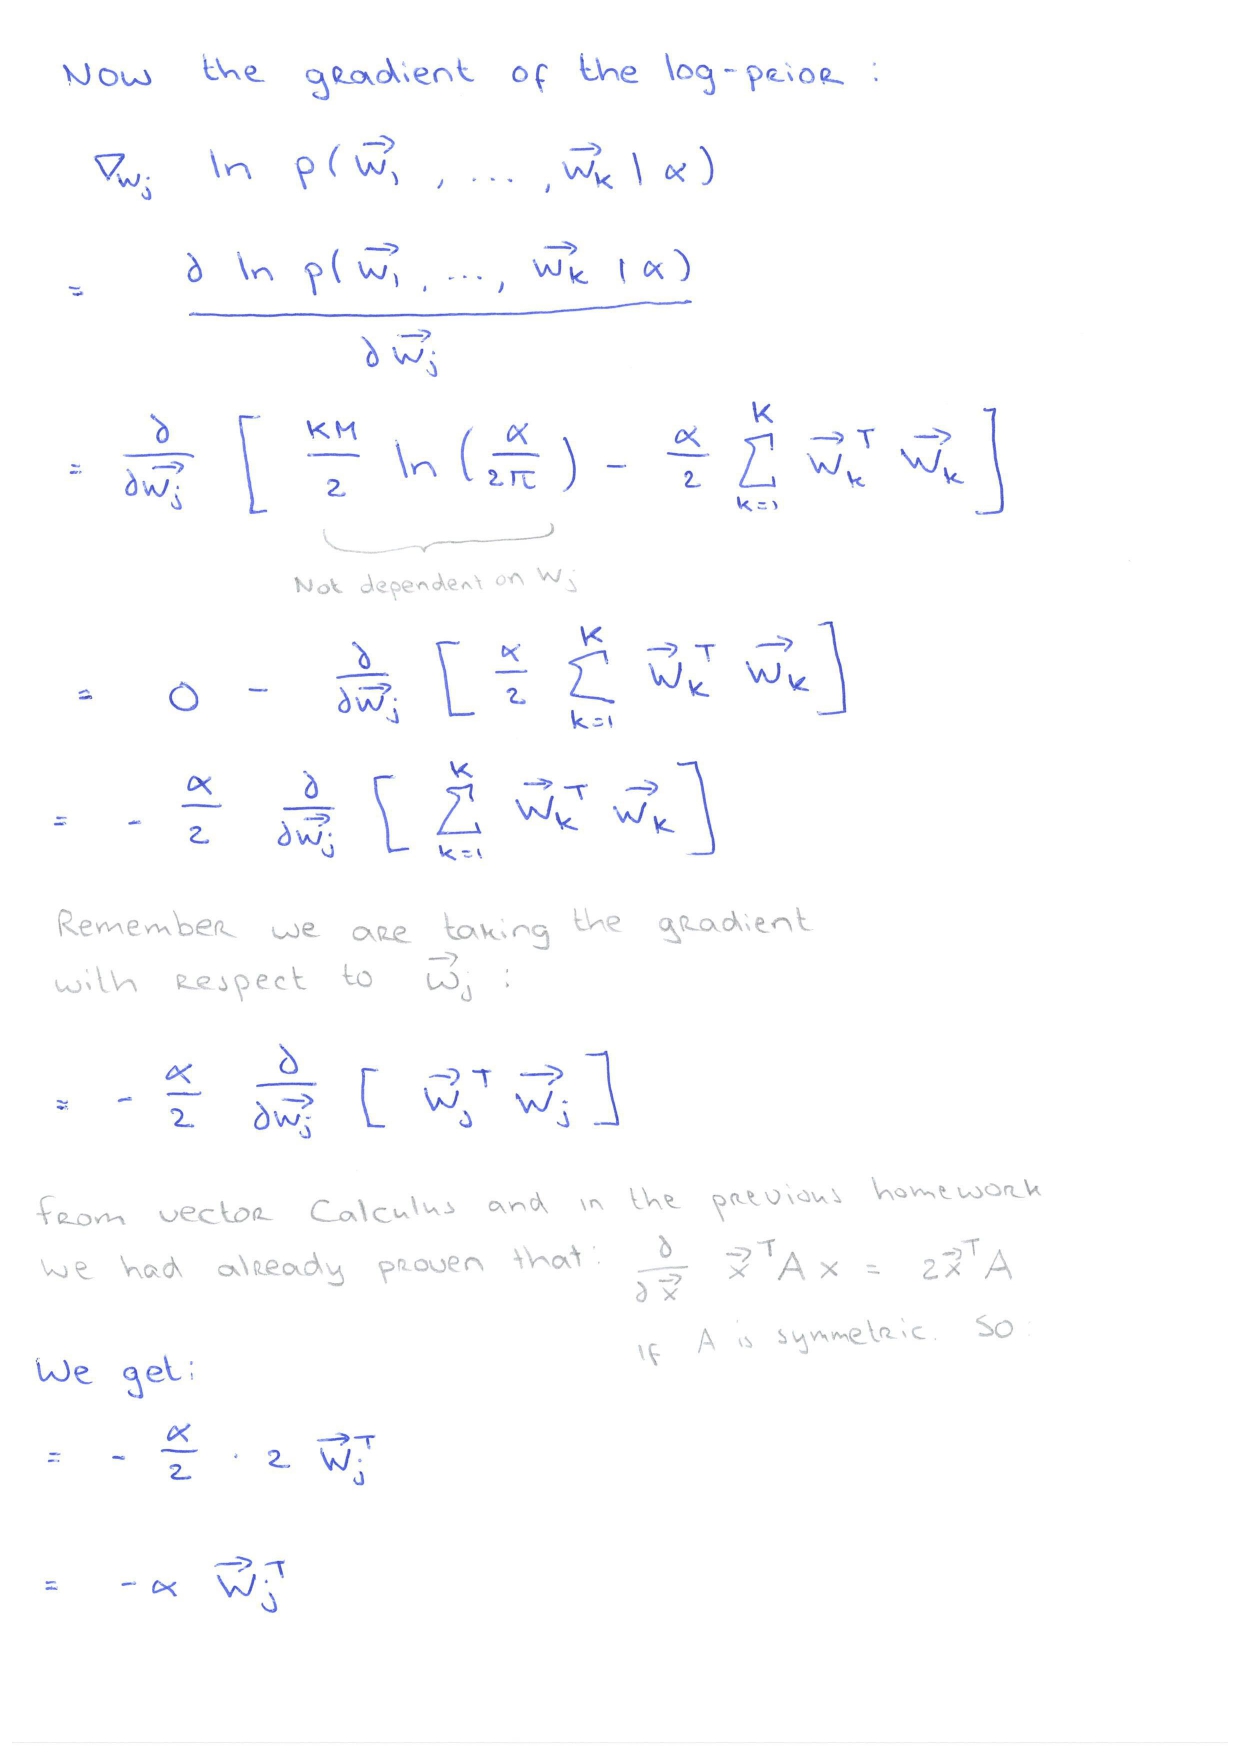 Now the gradient of the log-prior :
∇w_j ln p(w⃗_1 , ... , w⃗_K | α)
= ∂ ln p(w⃗_1, ..., w⃗_K | α) / ∂w⃗_j
= ∂/∂w⃗_j [ KM/2 ln (α/2π) - α/2 ∑_{k=1}^{K} w⃗_k^T w⃗_k ]
Not dependent on w_j
= 0 - ∂/∂w⃗_j [ α/2 ∑_{k=1}^{K} w⃗_k^T w⃗_k ]
= - α/2 ∂/∂w⃗_j [ ∑_{k=1}^{K} w⃗_k^T w⃗_k ]
Remember we are taking the gradient
with respect to w⃗_j :
= - α/2 ∂/∂w⃗_j [ w⃗_j^T w⃗_j ]
from vector Calculus and in the previous homework
we had already proven that: ∂/∂x⃗ x⃗^T A x = 2x⃗^T A
if A is symmetric. So:
We get:
= - α/2 · 2 w⃗_j^T
= -α w⃗_j^T